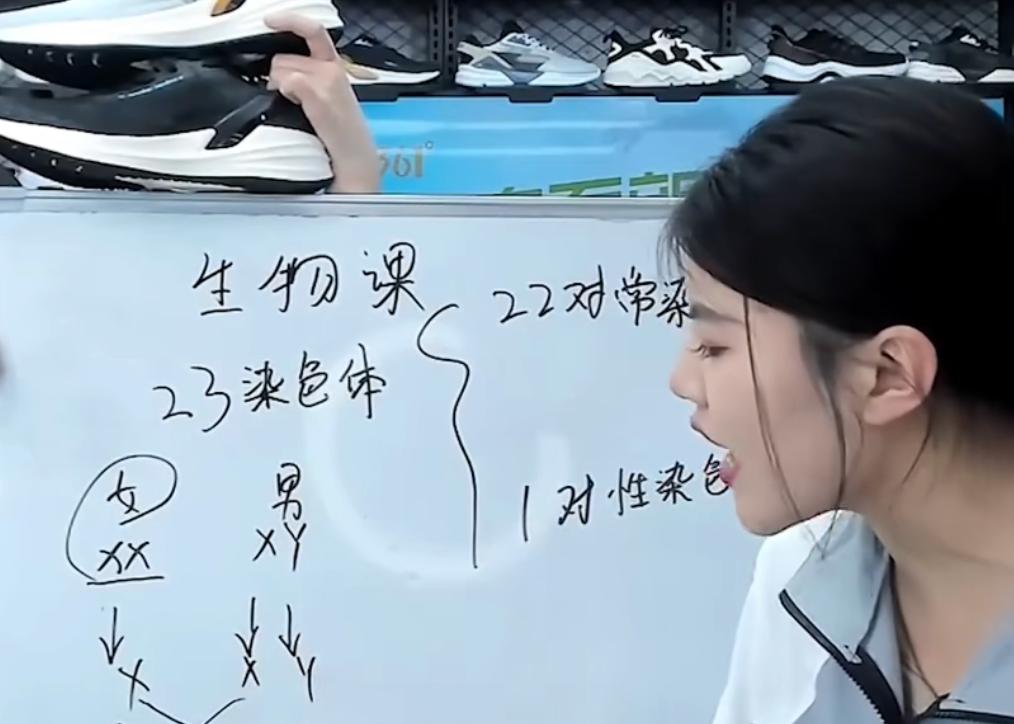 361°
生物课
22对常染
23染色体
1对性染色
女 男
XX XY
X X Y